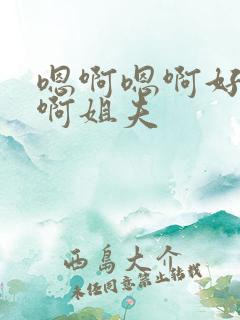 嗯啊嗯啊好
啊姐夫
西岛大介
未经同意禁止转载